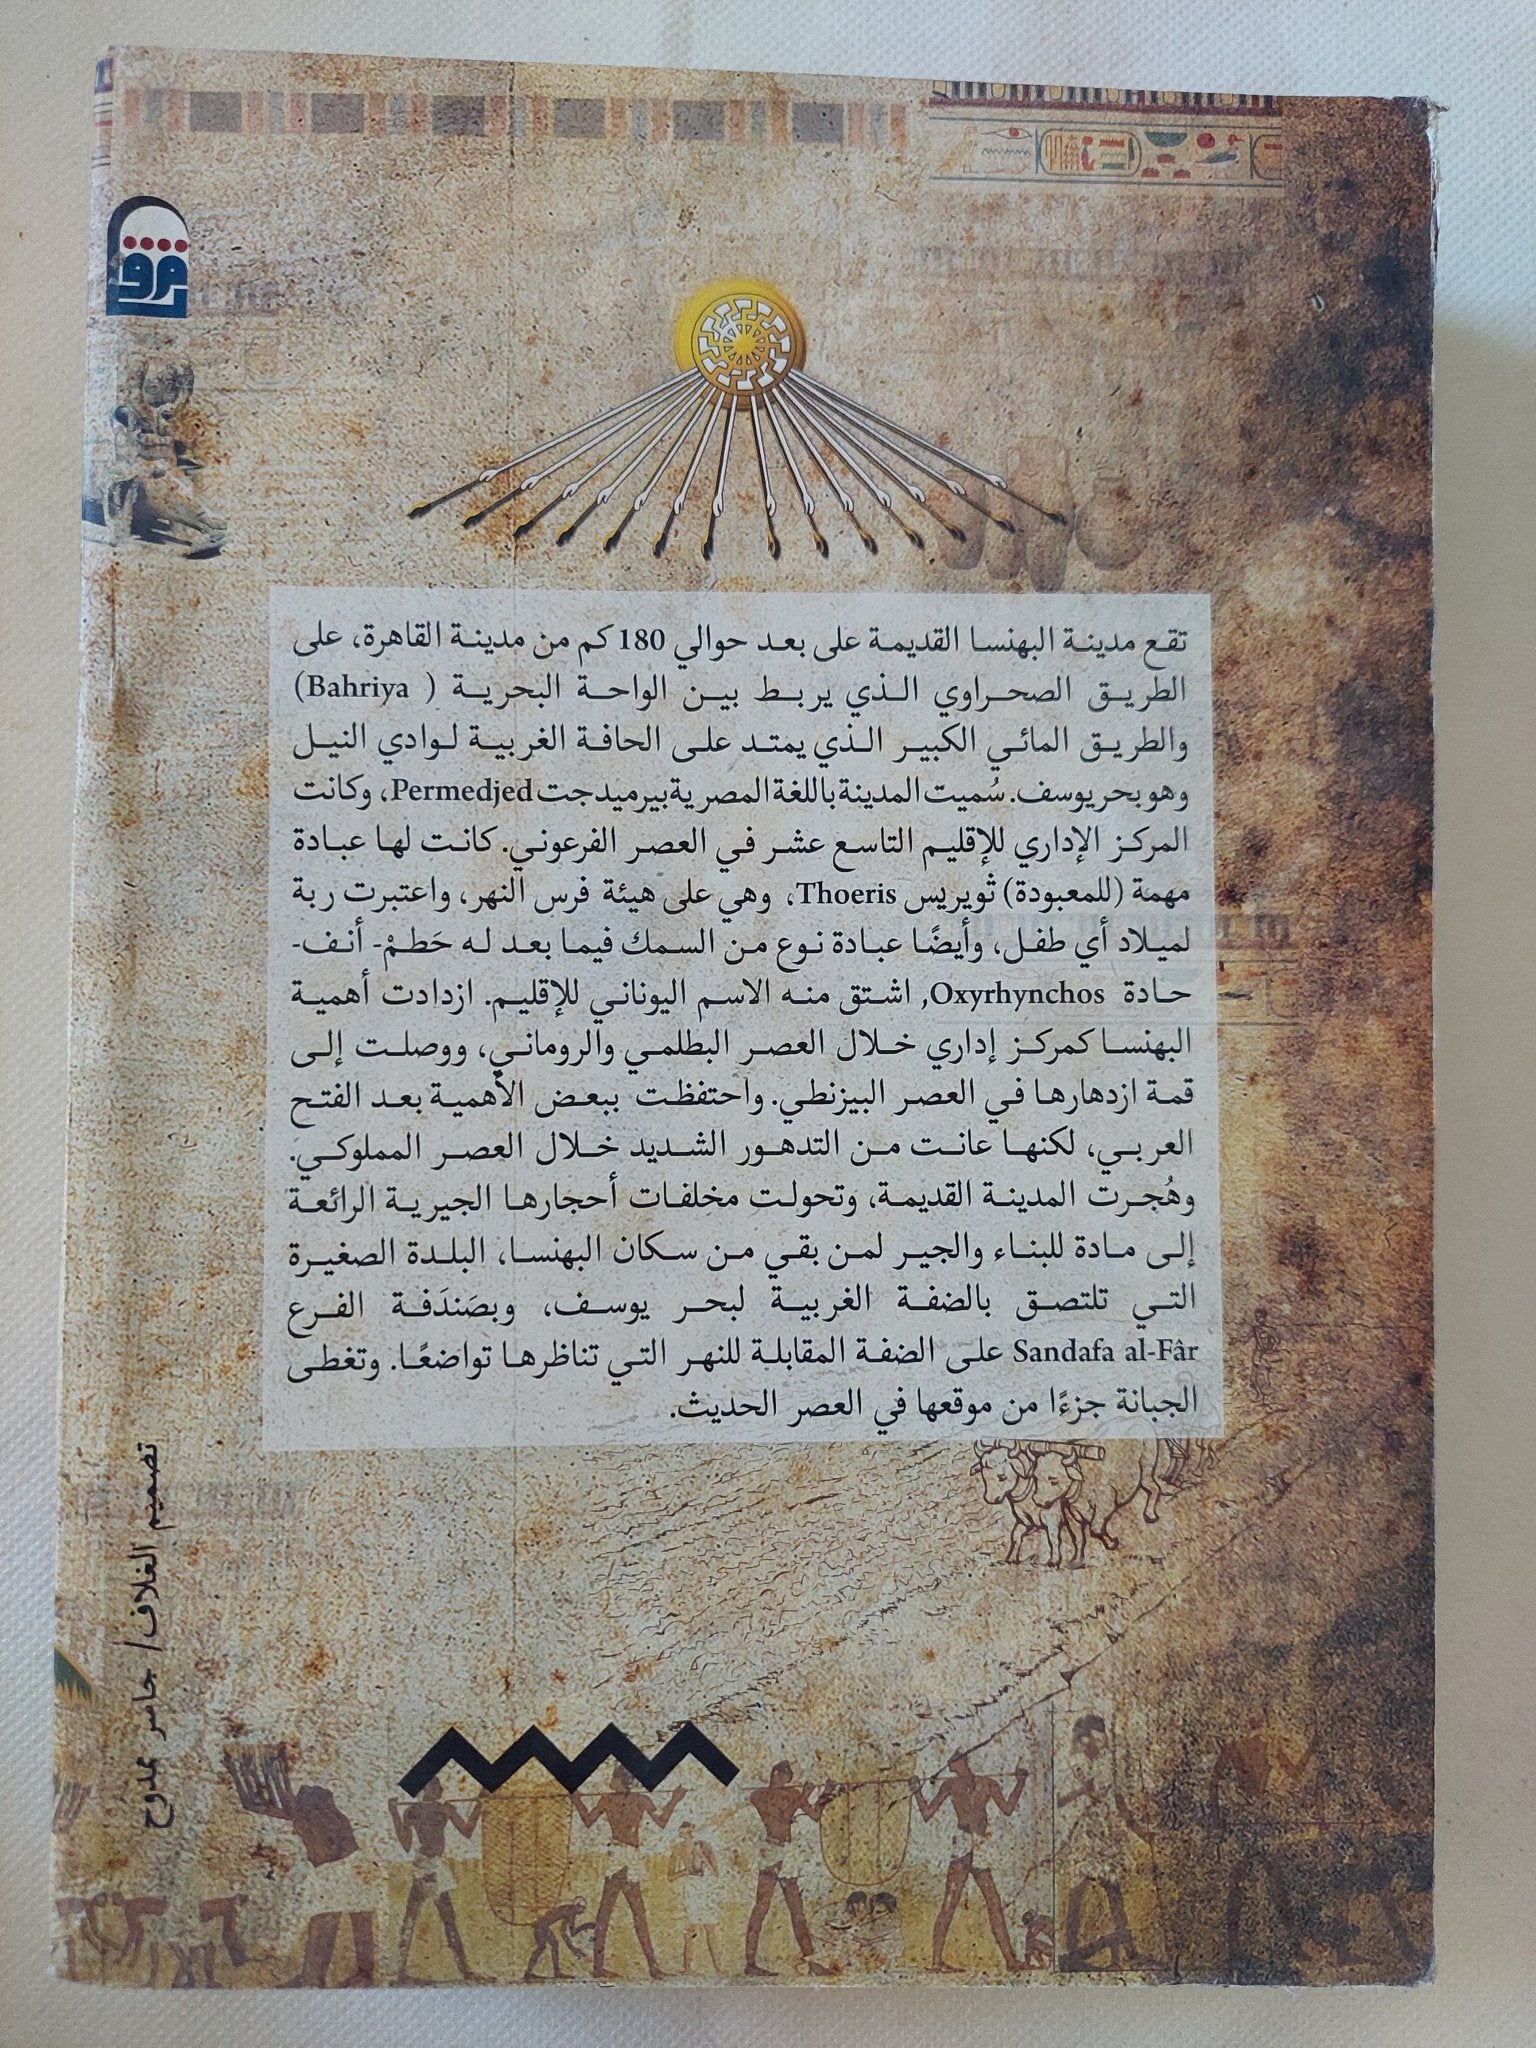 تقع مدينة البهنسا القديمة على بعد حوالي 180 كم من مدينة القاهرة، على
الطريق الصحراوي الذي يربط بين الواحة البحرية ( Bahriya)
والطريق المائي الكبير الذي يمتد على الحافة الغربية لوادي النيل
وهو بحر يوسف. سُميت المدينة باللغة المصرية بيرميدجت Permedjed، وكانت
المركز الإداري للإقليم التاسع عشر في العصر الفرعوني. كانت لها عبادة
مهمة (للمعبودة) ثويريس Thoeris، وهي على هيئة فرس النهر، واعتبرت ربة
لميلاد أي طفل، وأيضًا عبادة نوع من السمك فيما بعد له حَطمْ- أنف-
حادة Oxyrhynchos, اشتق منه الاسم اليوناني للإقليم. ازدادت أهمية
البهنسا كمركز إداري خلال العصر البطلمي والروماني، ووصلت إلى
قمة ازدهارها في العصر البيزنطي. واحتفظت ببعض الأهمية بعد الفتح
العربي، لكنها عانت من التدهور الشديد خلال العصر المملوكي.
وهُجرت المدينة القديمة، وتحولت مخلفات أحجارها الجيرية الرائعة
إلى مادة للبناء والجير لمن بقي من سكان البهنسا، البلدة الصغيرة
التي تلتصق بالضفة الغربية لبحر يوسف، وبصَندَفة الفرع
Sandafa al-Fâr على الضفة المقابلة للنهر التي تناظرها تواضعًا. وتغطى
الجبانة جزءًا من موقعها في العصر الحديث.
تصميم الغلاف/ جاسر ممدوح